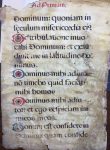 Ad Primam
Dominum: quoniam in
seculum misericordia eius
De tribulatione inuo
caui Dominum: et exaudi
uit me in latitudine do
minus
Dominus mihi adiu
tor non timebo quid faciat
mihi homo
Dominus mihi adiu
tor et ego despiciam ini
micos meos
Bonum est confidere in
confidere